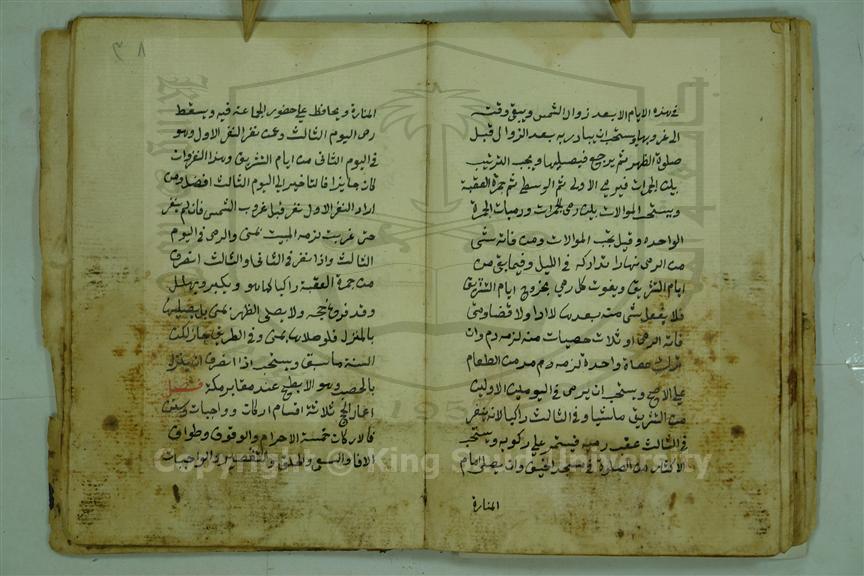 في هذه الايام الا بعد زوال الشمس ويبقى وقته
الى غروبها ويستحب ان يبادر به بعد الزوال قبل
صلوة الظهر ثم يرجع فيصليها ويجب الترتيب
بين الجمرات فيرمي الاولى ثم الوسطى ثم جمرة العقبة
ويستحب الموالات بين رمي الجمرات ورميات الجمرة
الواحدة وقيل يجب الموالات ومن فاته شئ
من الرمي نهارا تداركه في الليل وفيما بقي من
ايام التشريق ويفوت كل رمي بخروج ايام التشريق
فلا يفعل شئ منه بعدها لا اداء ولا قضا ومتى
فاته الرمي او ثلاث حصيات منه لزمه دم وان
ترك حصاة واحدة لزمه دم مد من الطعام
على الاصح ويستحب ان يرمي في اليومين الاولين
من التشريق ماشيا وفي الثالث راكبا لانه ينفر
في الثالث عقب رميه فيستمر على ركوبه ويستحب
الاكثار من الصلوة في مسجد الخيف وان يصلي امام
المنارة
٨
المنارة ويحافظ على حضور الجماعة فيه ويسقط
رمي اليوم الثالث وعمن نفر النفر الاول وهو
في اليوم الثاني من ايام التشريق وهذا النفر وان
كان جايزا فالتاخير الى اليوم الثالث افضل ومن
اراد النفر الاول نفر قبل غروب الشمس فان لم ينفر
حتى غربت لزمه المبيت بمنى والرمي في اليوم
الثالث واذا نفر في الثاني والثالث انصرف
من جمرة العقبة راكبا كما هو ويكبر ويهلل
وقد فرغ حجه ولا يصلي الظهر بمنى بل يصليها
بالمنزل فلو صلاها بمنى وفي الطريق جاز لكن
السنة ما سبق ويستحب اذا انصرف ان ينزل
بالمحصب وهو الابطح عند مقابر مكة فصل
اعمال الحج ثلاثة اقسام اركان وواجبات وسنن
فالاركان خمسة الاحرام والوقوف وطواف
الافاضة والسعي والحلق والتقصير والواجبات
Copyright © King Saud University
1957